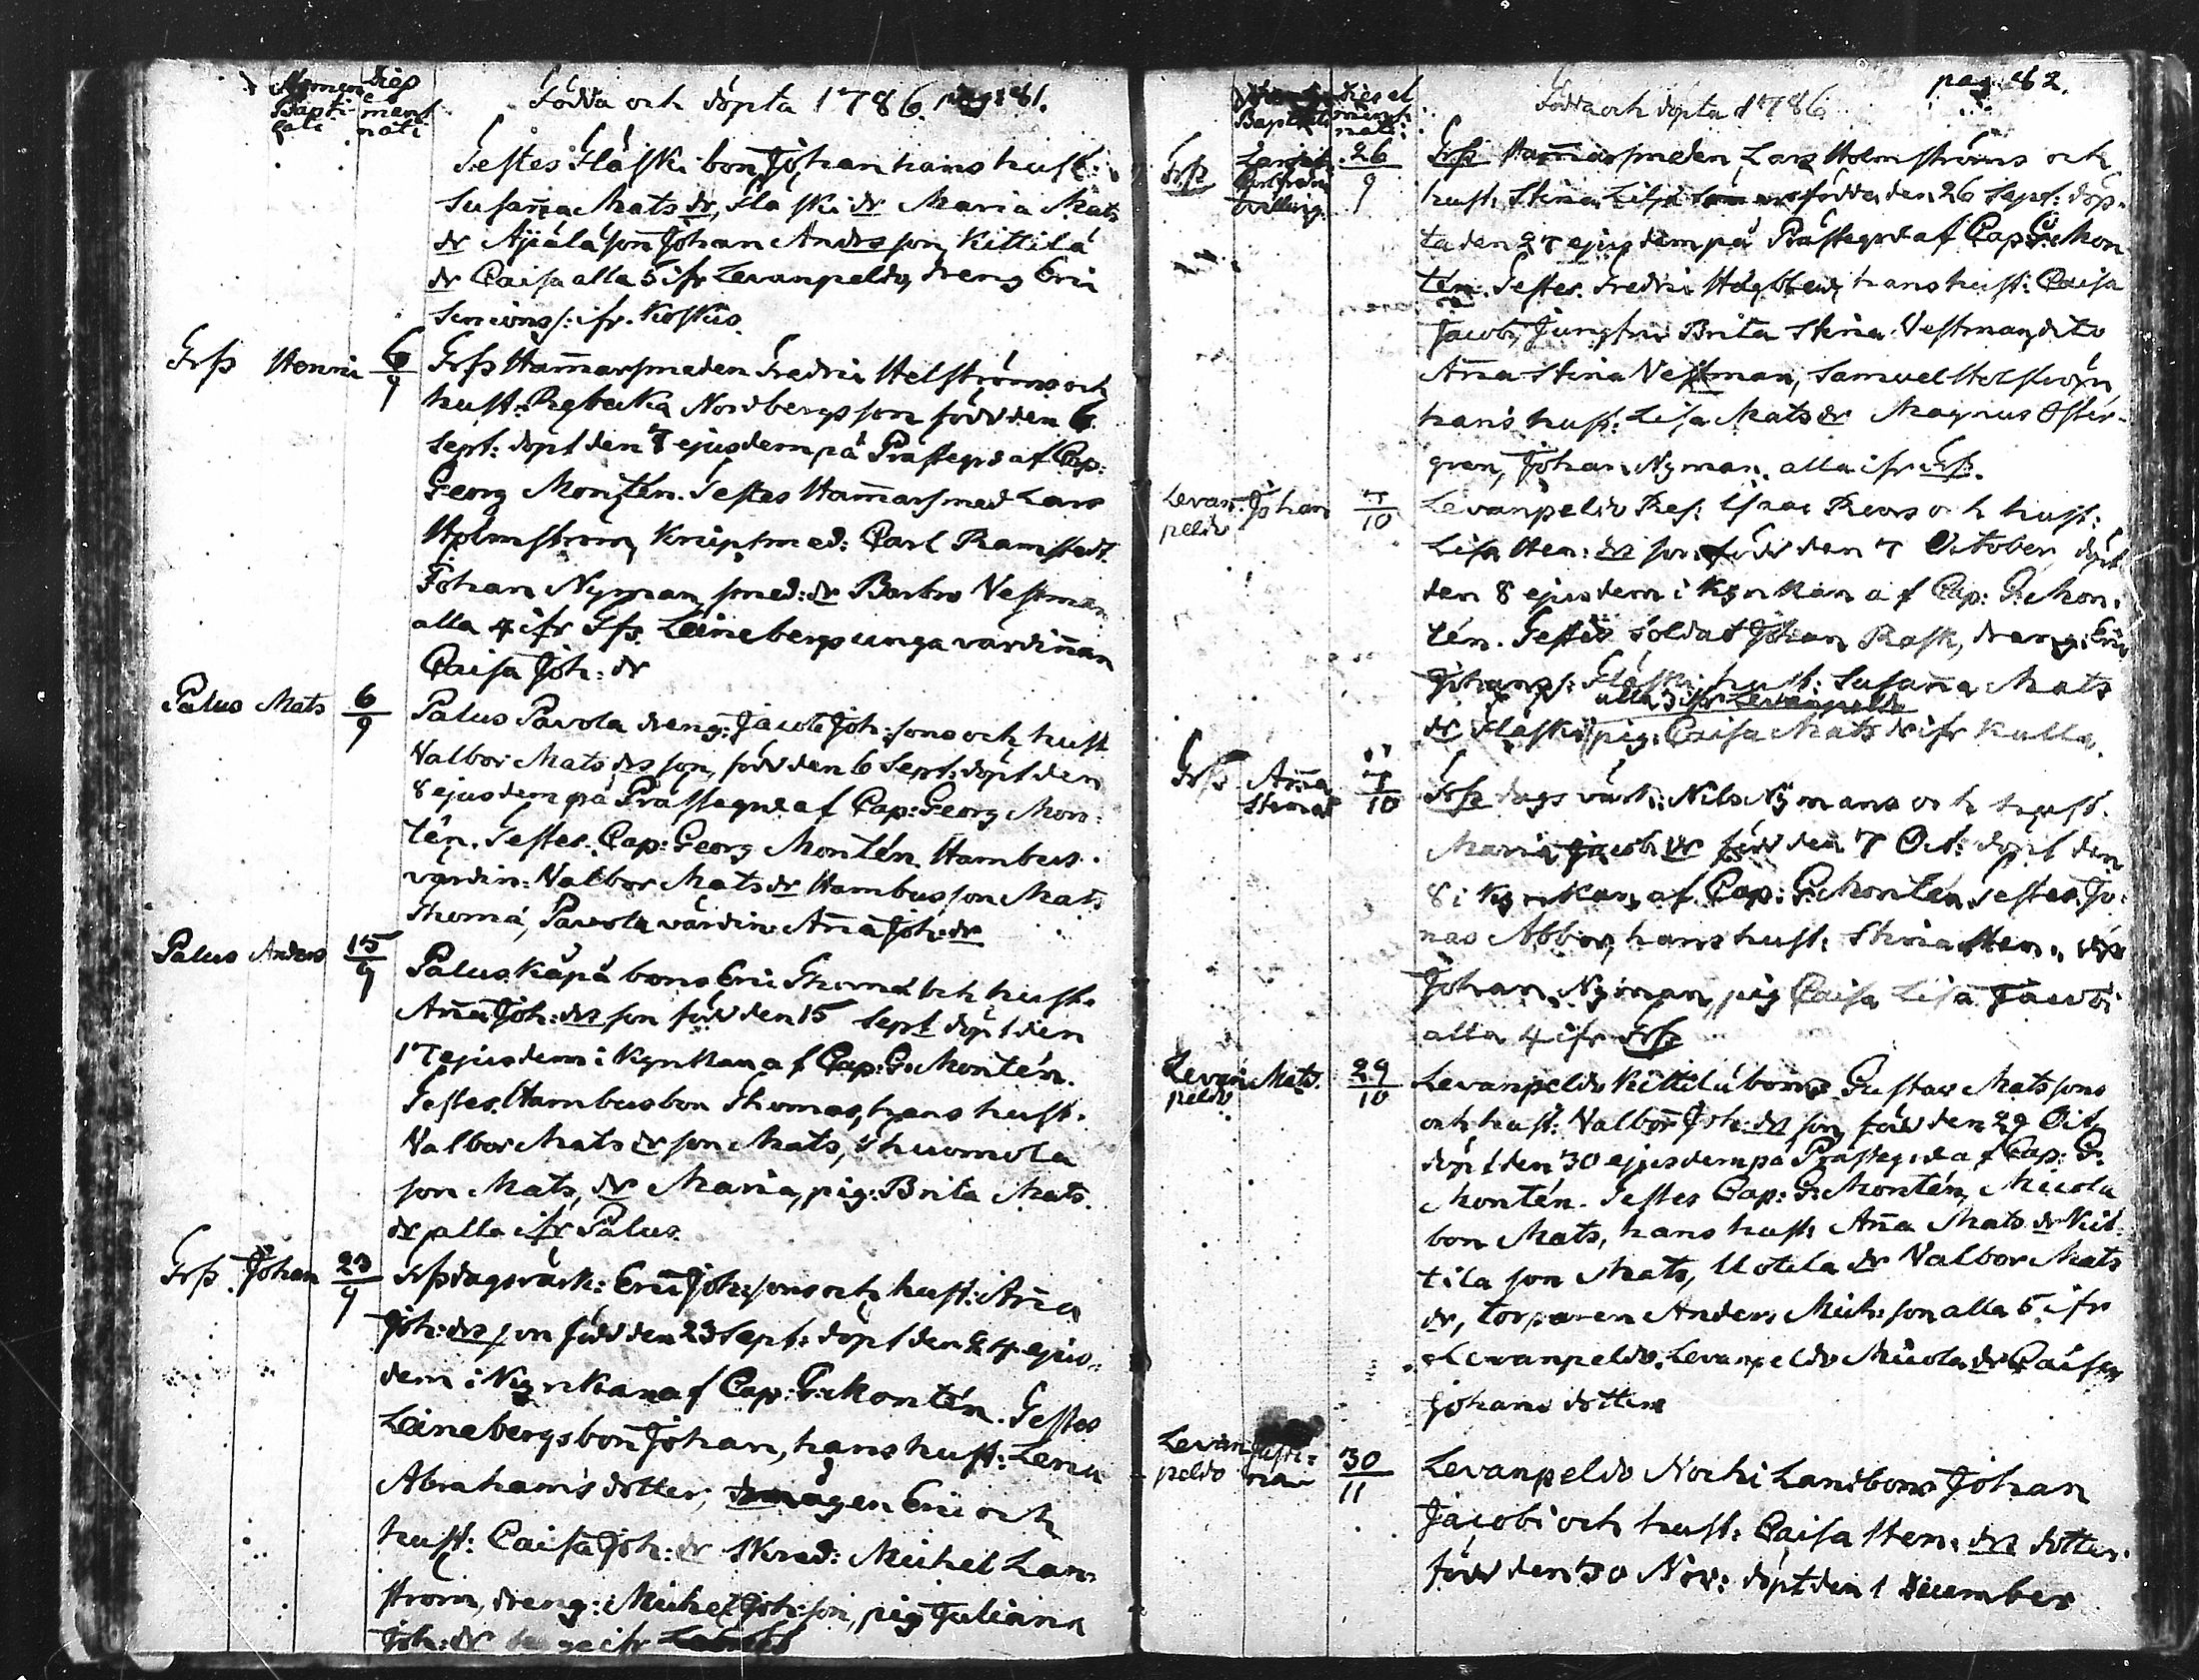 Nomen Baptizati
Dies et mens nati
Födda och döpta 1786. pag: 81.
Testes Fläski bon Johan hans hust:
Susanna Mats dr, Fläski dr Maria Mats
dr Äjälä son Johan Andersson, Kittilä
dr Caisa alla 5 ifr Levanpeldo, dreng Eric
Simons s: ifr. Koskus.
Grfß Henric 6/9 Grfß Hammarsmeden Fredric Helströms och
hust: Rebecka Nordbergs son född den 6
Sept: döpt den 7 ejusdem på Prästegrd af Cap:
Georg Montén. Testes Hammarsmed Lars
Holmström, Knipsmed: Carl Ramstedt
Johan Nyman, smed: dr Barbro Vestman
alla 4 ifr Grfß. Leinebergs unga värdinnan
Caisa Joh: dr
Palus Mats 6/9 Palus Pavola dreng: Jacob Joh:sons och hust
Valbor Mats drs son, född den 6 Sept: döpt den
8 ejusdem på Prästegrd af Cap: Georg Mon-
tén. Testes. Cap: Georg Montén. Hambus
värdin: Valbor Mats dr Hambus son Mats
Thomä, Pavola värdin Anna Joh: dr
Palus Anders 15/9 Palus Käpä bons Eric Thomä och hust.
Anna Joh: drs son född den 15 Sept döpt den
17 ejusdem i Kyrkan af Cap: G: Montén.
Testes. Hambus bon Thomas, hans hust.
Valbor Mats dr son Mats, Thuomola
son Mats, dr Maria, pig: Brita Mats
dr alla ifr Palus.
Grfß. Johan 23/9 Grfß dagsvärk: Eric Joh:sons och hust: Anna
Joh: drs son född den 23 Sept: döpt den 24 ejus-
dem i Kyrkan af Cap: G: Montén. Testes
Leinebergs bon Johan, hans hust: Lena
Abrahams dotter, mågen Eric och
hust: Caisa Joh: dr Skred: Michel Lan-
ström, dreng: Michel Joh:son, pig Juliana
Joh: dr ifr
pag. 82.
Baptizati
Dies et mens nati
Födda och döpta 1786
Grfß tvilling. 26/9 Grfß Hammarsmeden Lars Holmströms och
hust: Stina Lilja födda den 26 Sept: döp-
ta den 27 ejusdem på Prästegrd af Cap: G: Mon
tén. Testes. Fredric Högbben, hans hust: Caisa
Jacobi, Jungfru Brita Stina Vestman, dito
Anna Stina Vestman, Samuel Holström
hans hust: Lisa Mats dr Magnus Öster-
gren, Johan Nyman. alla ifr Grfß.
Levanpeldo Johan 7/10 Levanpeldo Res: Isaac Revers och hust:
Lisa Hen: drs son född den 7 October, döpt
den 8 ejusdem i Kyrkan af Cap: G: Mon-
tén. Testes Soldat Johan Rask, dreng: Eric
Johans s: Fläski hust: Susanna Mats
alla 3 ifr Levanpeldo
dr Fläski, pig: Caisa Mats dr ifr Kulla.
Grfß Anna Stina 7/10 Grfß dags värk: Nils Nymans och hust.
Maria Jacobi dr född den 7 Oct: döpt den
8 i Kyrkan af Cap: G: Montén. Testes. Jo-
nas Abbor, hans hust: Stina Hen:
Johan Nyman, pig Caisa Lisa Jacobi
alla 4 ifr Grfß
Levanpeldo Mats. 29/10 Levanpeldo Kittilä bons Gustav Matssons
och hust: Valbor Joh: drs son född den 29 Oct
döpt den 30 ejusdem på Prästegrd af Cap: G:
Montén. Testes Cap: G: Montén, Micola
bon Mats, hans hust: Anna Mats dr Kit-
tila son Mats, Uotila dr Valbor Mats
dr, torparen Anders Mich:son alla 5 ifr
Levanpeldo. Levanpeldo Micola dr Caisa
Johans dotter
Levanpeldo Justina 30/11 Levanpeldo Nocki Landbons Johan
Jacobi och hust: Caisa Hen: drs dotter
född den 30 Nov: döpt den 1 December